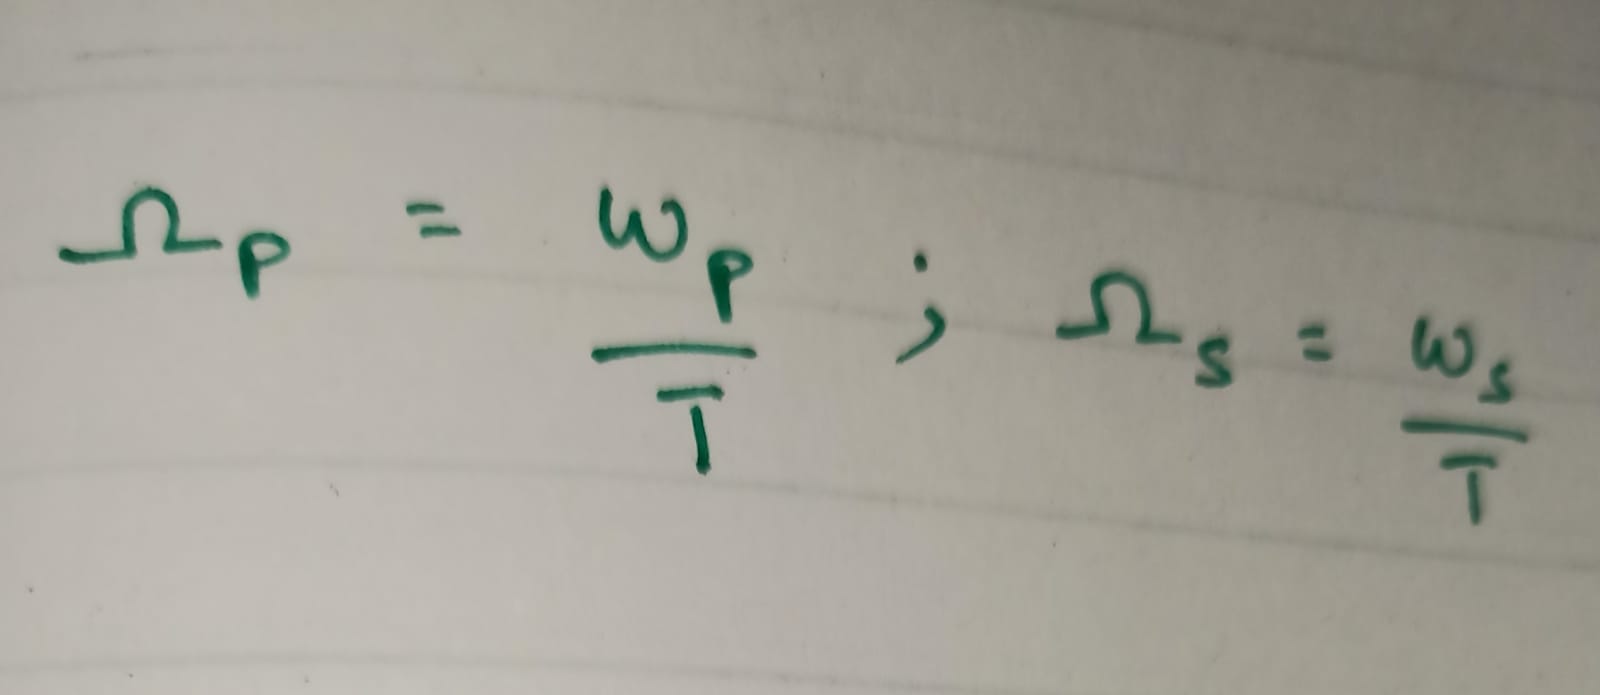 Ω_p = ω_p / T ; Ω_s = ω_s / T